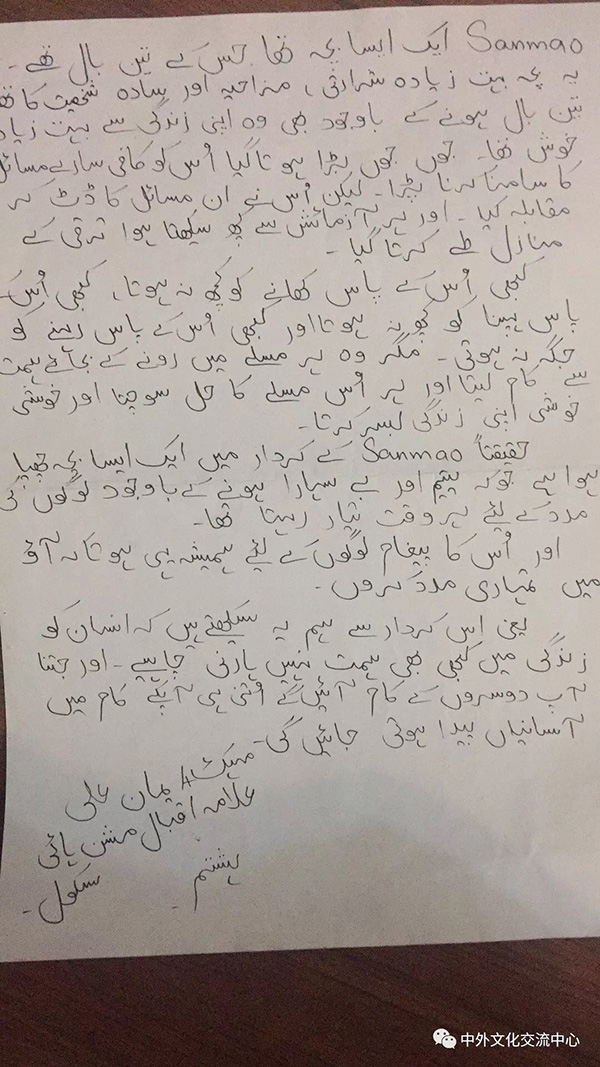 Sanmao ایک ایسا بچہ تھا جس کے تین بال تھے۔
یہ بچہ بہت زیادہ شرارتی، مزاحیہ اور سادہ شخصیت کا تھا
تین بال ہونے کے باوجود بھی وہ اپنی زندگی سے بہت زیادہ
خوش تھا۔ جوں جوں بڑا ہوتا گیا اُس کو کافی سارے مسائل
کا سامنا کرنا پڑا۔ لیکن اُس نے ان مسائل کا ڈٹ کر
مقابلہ کیا۔ اور ہر آزمائش سے کچھ سیکھتا ہوا ترقی کے
منازل طے کرتا گیا۔
کبھی اُس کے پاس کھانے کو کچھ نہ ہوتا، کبھی اُس
پاس پہننا کو کچھ نہ ہوتا اور کبھی اُس کے پاس رہنے کو
جگہ نہ ہوتی۔ مگر وہ ہر مسلے میں رونے کے بجائے ہمت
سے کام لیتا اور ہر اُس مسلے کا حل سوچتا اور خوشی
خوشی اپنی زندگی بسر کرتا۔
حقیقتاً Sanmao کے کردار میں ایک ایسا بچہ چھپا
ہوا ہے جو کہ یتیم اور بے سہارا ہونے کے باوجود لوگوں کی
مدد کے لئے ہر وقت تیار رہتا تھا۔
اور اُس کا پیغام لوگوں کے لئے ہمیشہ یہی ہوتا کہ آؤ
میں تمہاری مدد کروں۔
یعنی اس کردار سے ہم یہ سیکھتے ہیں کہ انسان کو
زندگی میں کبھی بھی ہمت نہیں ہارنی چاہیے۔ اور جتنا
آپ دوسروں کے کام آئیں گے اُتنی ہی آپکے کام میں
آسانیاں پیدا ہوتی جائیں گی۔
علی
علامہ اقبال مشن ہائی
سکول۔
ہشتم۔
中外文化交流中心